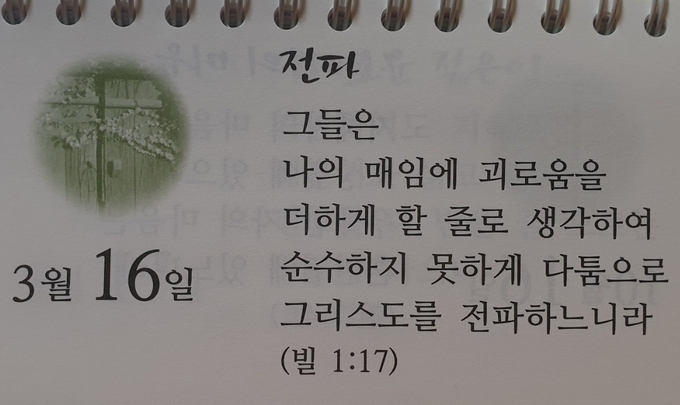 전파
그들은
나의 매임에 괴로움을
더하게 할 줄로 생각하여
순수하지 못하게 다툼으로
그리스도를 전파하느니라
(빌 1:17)
3월 16일